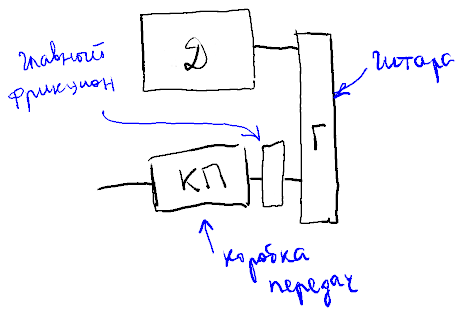 Главный
фрикцион
Д
Гитара
Г
КП
коробка
передач